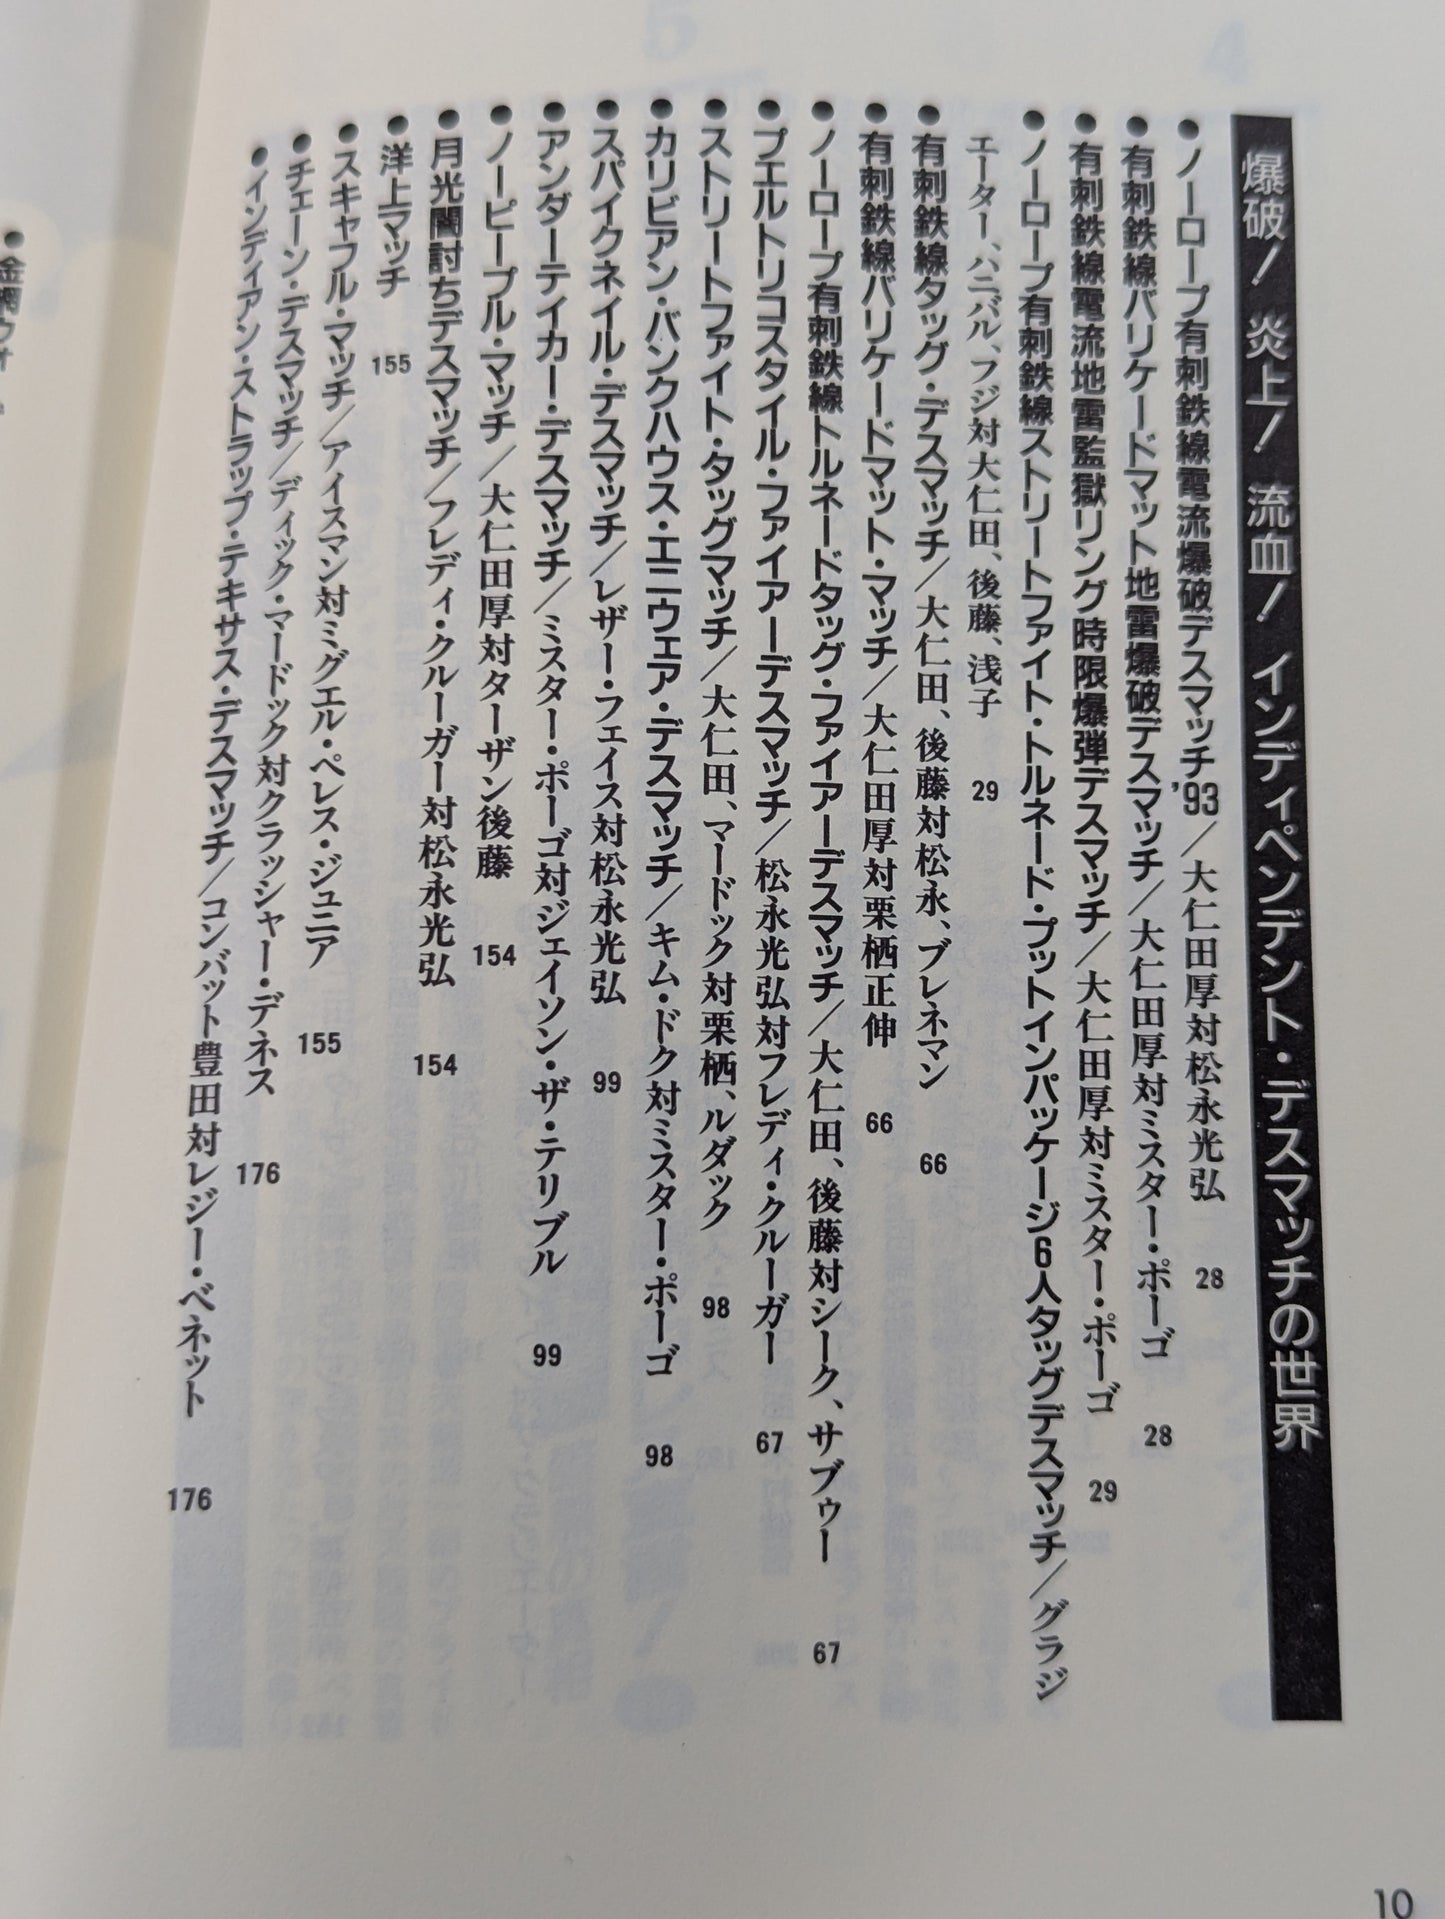 爆破！ 炎上！ 流血！ インディペンデント・デスマッチの世界
●ノーロープ有刺鉄線電流爆破デスマッチ'93／大仁田厚対松永光弘 28
●有刺鉄線バリケードマット地雷爆破デスマッチ／大仁田厚対ミスター・ポーゴ 28
●有刺鉄線電流地雷監獄リング時限爆弾デスマッチ／大仁田厚対ミスター・ポーゴ 29
●ノーロープ有刺鉄線ストリートファイト・トルネード・プットインパッケージ6人タッグデスマッチ／グラジ
エーター、ハニバル、フジ対大仁田、後藤、浅子 29
●有刺鉄線タッグ・デスマッチ／大仁田、後藤対松永、ブレネマン 66
●有刺鉄線バリケードマット・マッチ／大仁田厚対栗栖正伸 66
●ノーロープ有刺鉄線トルネードタッグ・ファイアーデスマッチ／大仁田、後藤対シーク、サブゥー 67
●プエルトリコスタイル・ファイアーデスマッチ／松永光弘対フレディ・クルーガー 67
●ストリートファイト・タッグマッチ／大仁田、マードック対栗栖、ルダック 98
●カリビアン・バンクハウス・エニウェア・デスマッチ／キム・ドク対ミスター・ポーゴ 98
●スパイクネイル・デスマッチ／レザー・フェイス対松永光弘 99
●アンダーテイカー・デスマッチ／ミスター・ポーゴ対ジェイソン・ザ・テリブル 99
●ノーピープル・マッチ／大仁田厚対ターザン後藤 154
●月光闇討ちデスマッチ／フレディ・クルーガー対松永光弘 154
●洋上マッチ 155
●スキャフル・マッチ／アイスマン対ミグエル・ペレス・ジュニア 155
●チェーン・デスマッチ／ディック・マードック対クラッシャー・デネス 176
●インディアン・ストラップ・テキサス・デスマッチ／コンバット豊田対レジー・ベネット 176
10
●金網ウォ